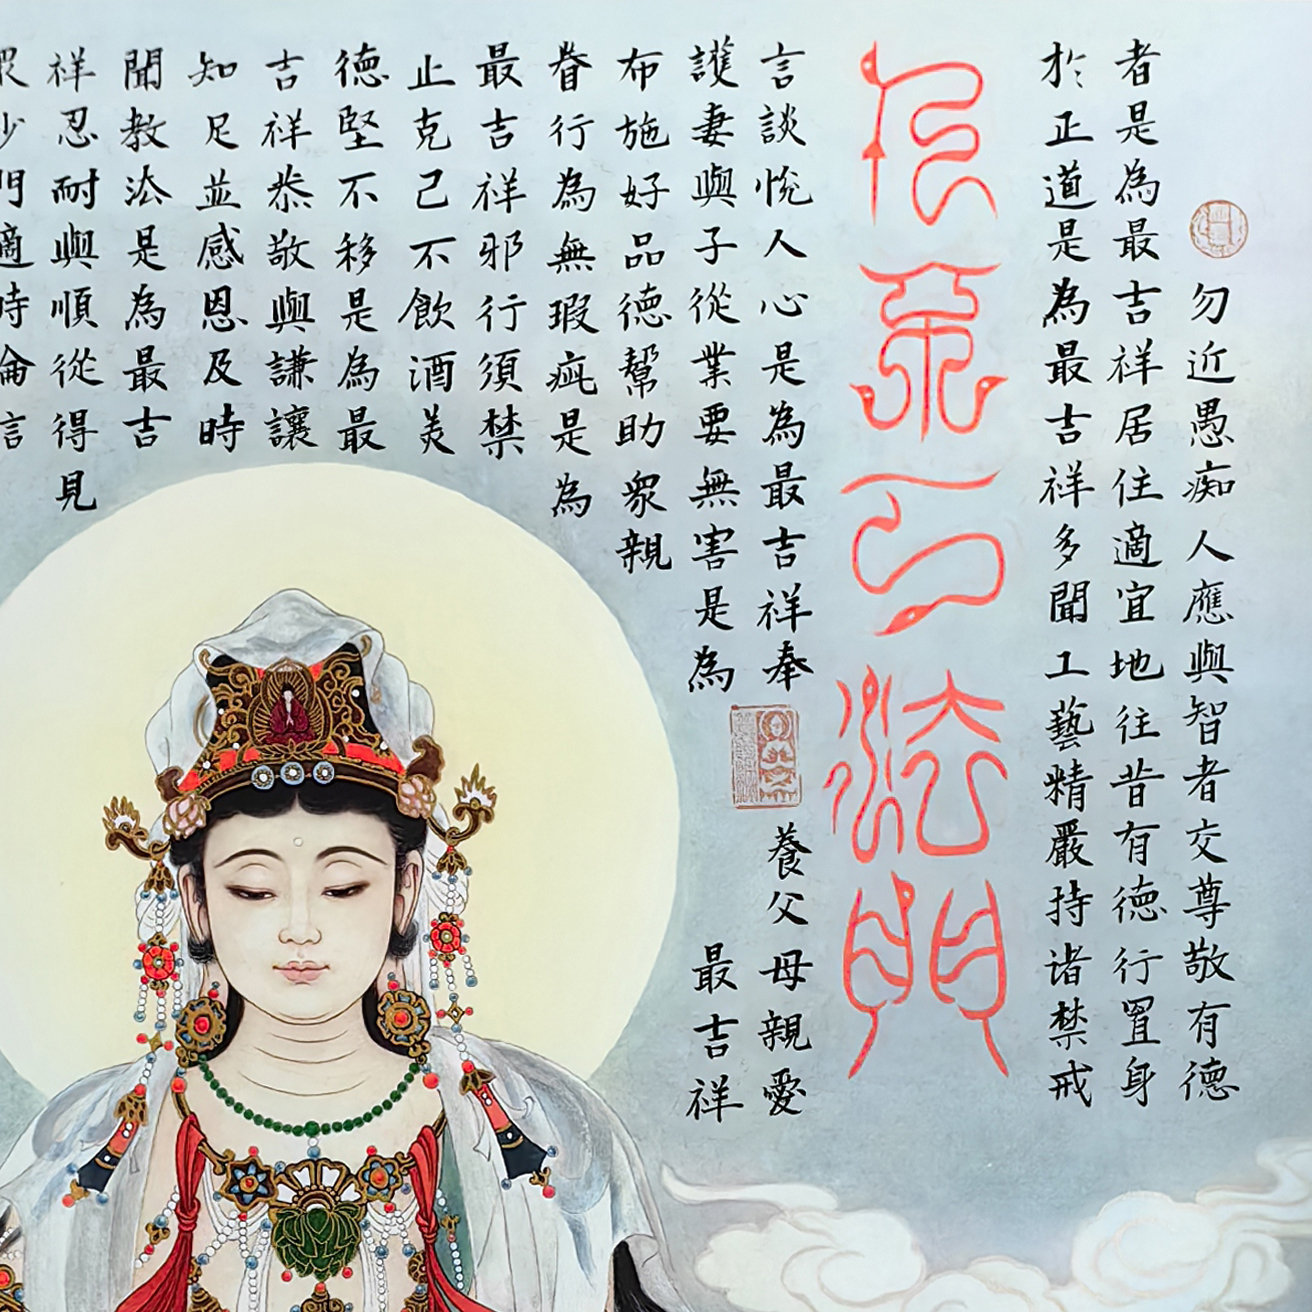 勿近愚痴人應與智者交尊敬有德
者是為最吉祥居住適宜地往昔有德行置身
於正道是為最吉祥多聞工藝精嚴持诸禁戒
法門
言談悅人心是為最吉祥奉養父母親愛
護妻與子從業要無害是為最吉祥
布施好品德幫助衆親
眷行為無瑕疵是為
最吉祥邪行須禁
止克己不飲酒美
德堅不移是為最
吉祥恭敬與謙讓
知足並感恩及時
聞教法是為最吉
祥忍耐與順從得見
眾沙門適時論言